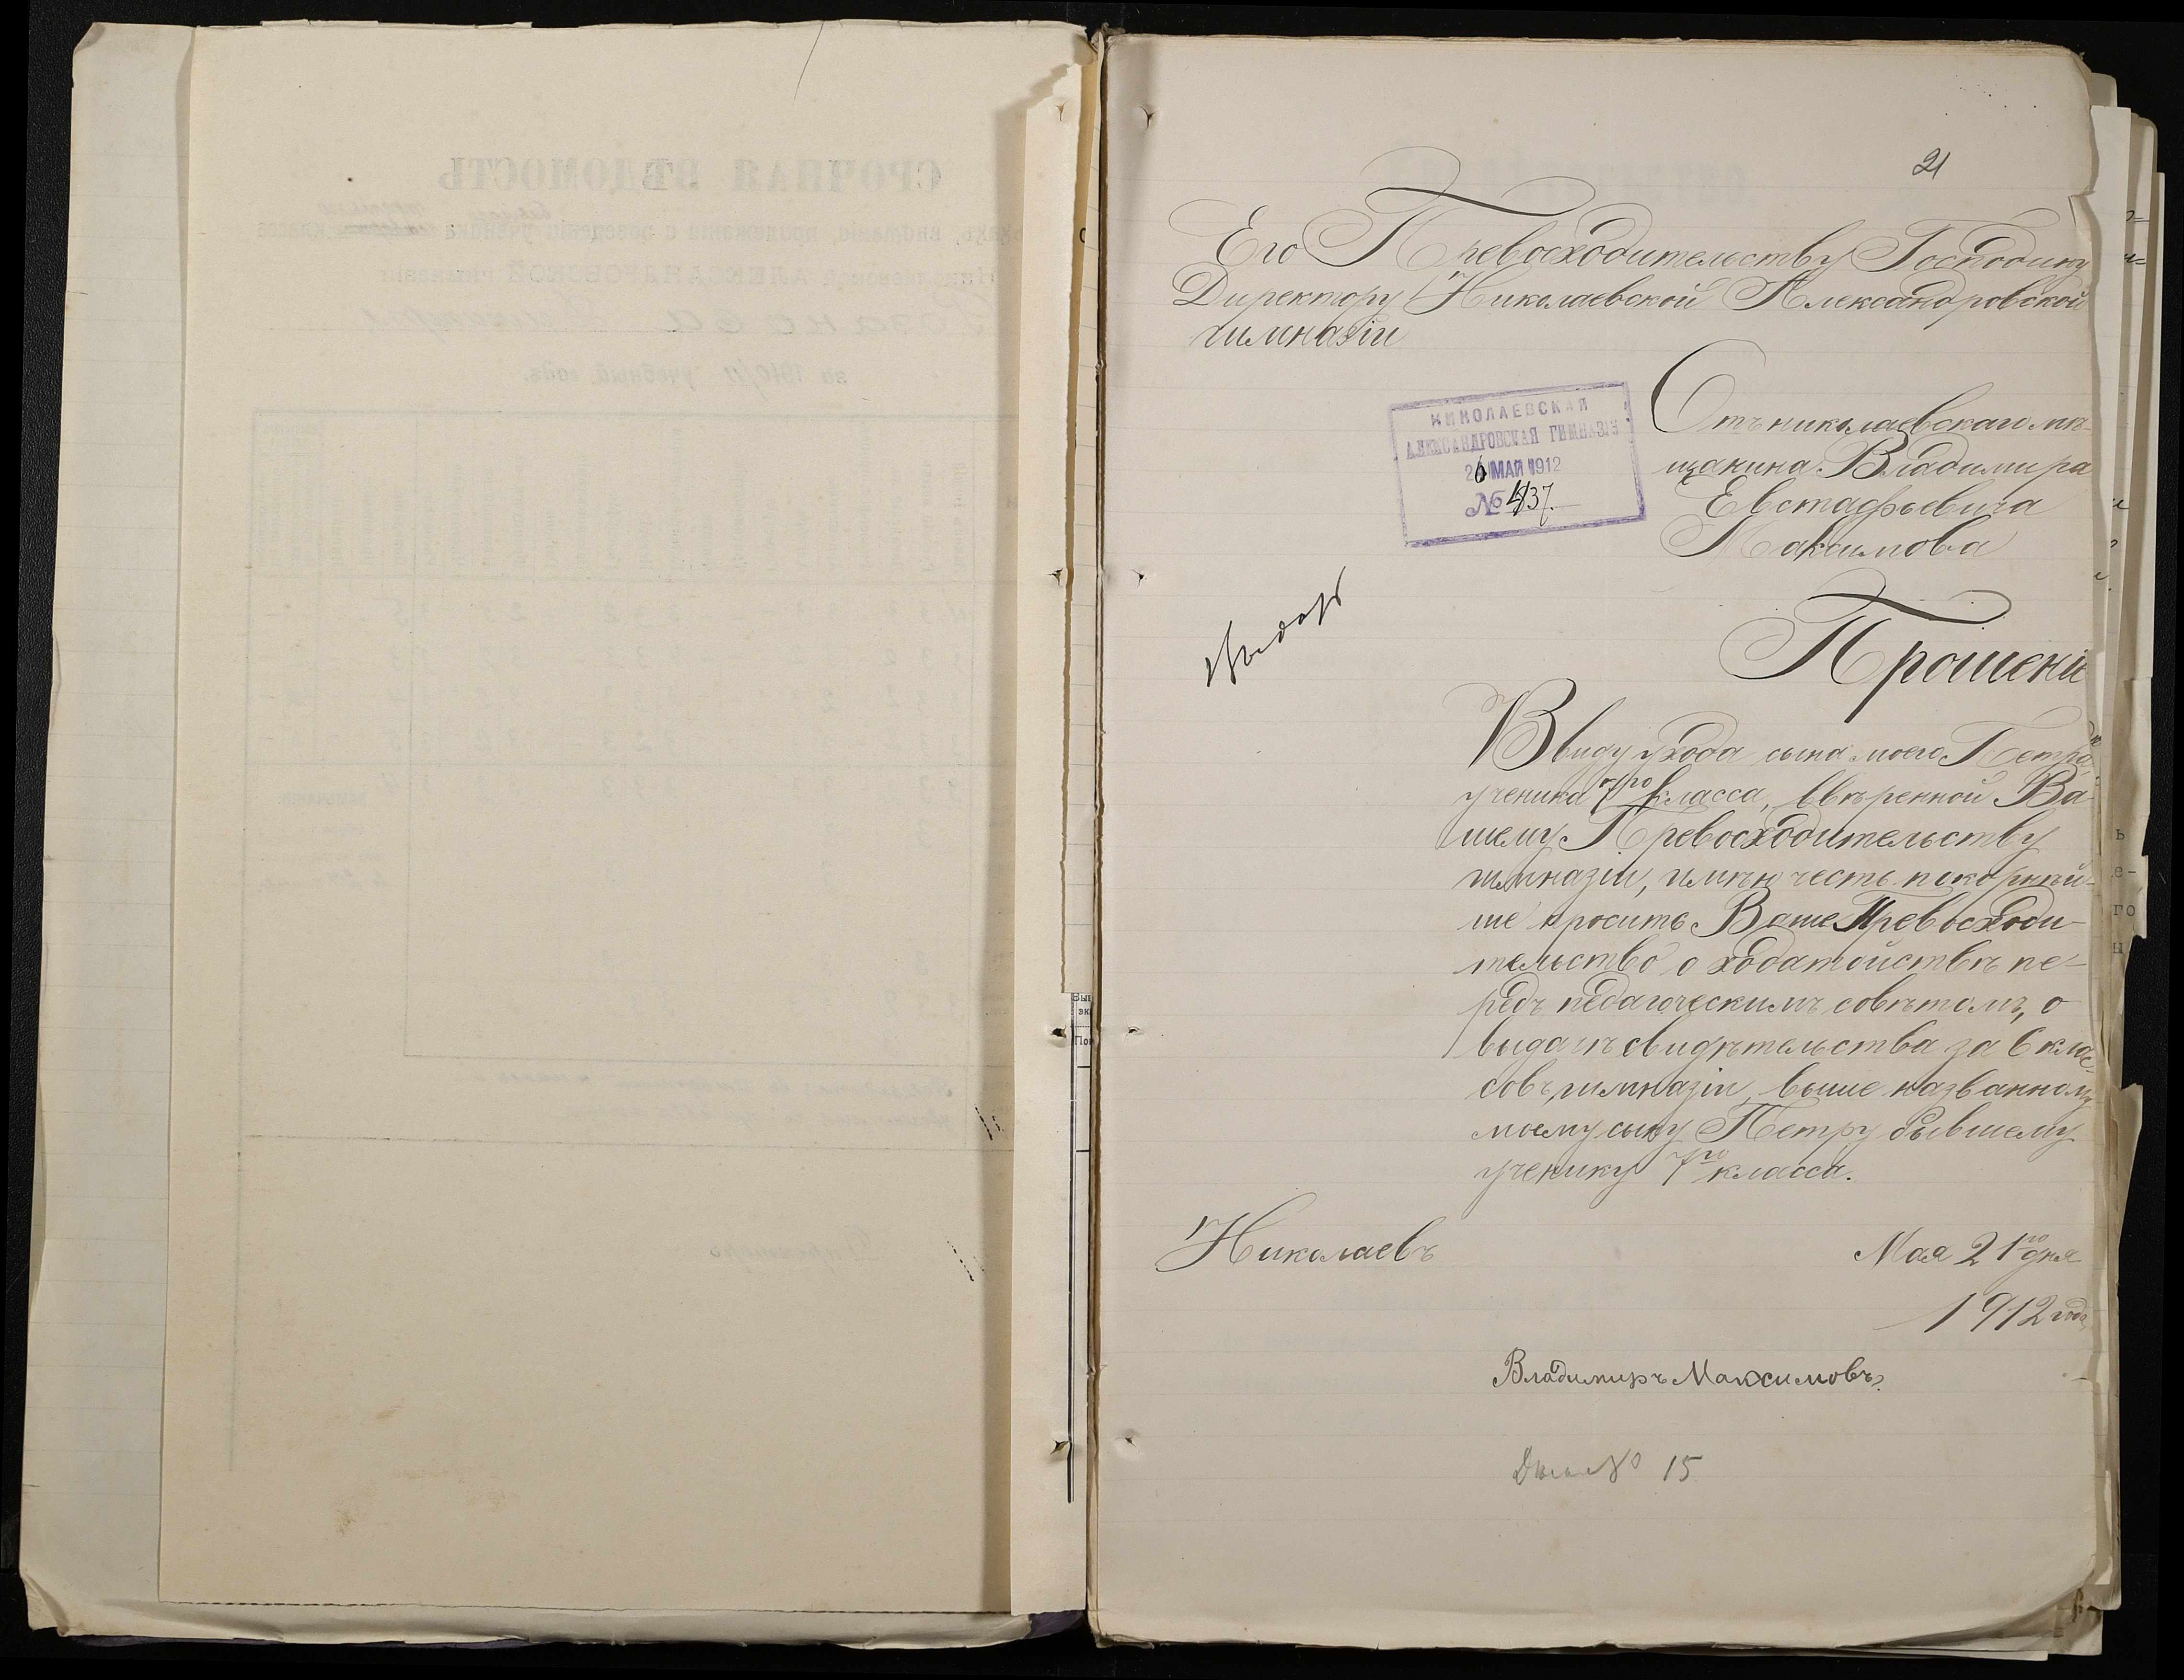 21
Его Превосходительству Господину
Директору Николаевской Александровской
гимназіи
НИКОЛАЕВСКАЯ
АЛЕКСАНДРОВСКАЯ ГИМНАЗІЯ
26 МАЙ 1912
№ 437.
Отъ николаевскаго мѣ-
щанина Владимира
Евстафьевича
Максимова
Выдать
Прошені
Ввиду ухода сына моего Петра,
ученика 7го класса, ввѣренной Ва-
шему Превосходительству
гимназіи, имѣю честь покорнѣй-
ше просить Ваше Превосходи-
тельство о ходатайствѣ пе-
редъ педагогическимъ совѣтомъ, о
выдачѣ свидѣтельства за 6 клас-
совъ, гимназіи, выше названному
моему сыну Петру бывшему
ученику 7го класса.
Николаевъ
Мая 21го дня
1912 года
Владимиръ Максимовъ.
Дѣло № 15
СРОЧНАЯ ВѢДОМОСТЬ
за 1910/11 учебный годъ.